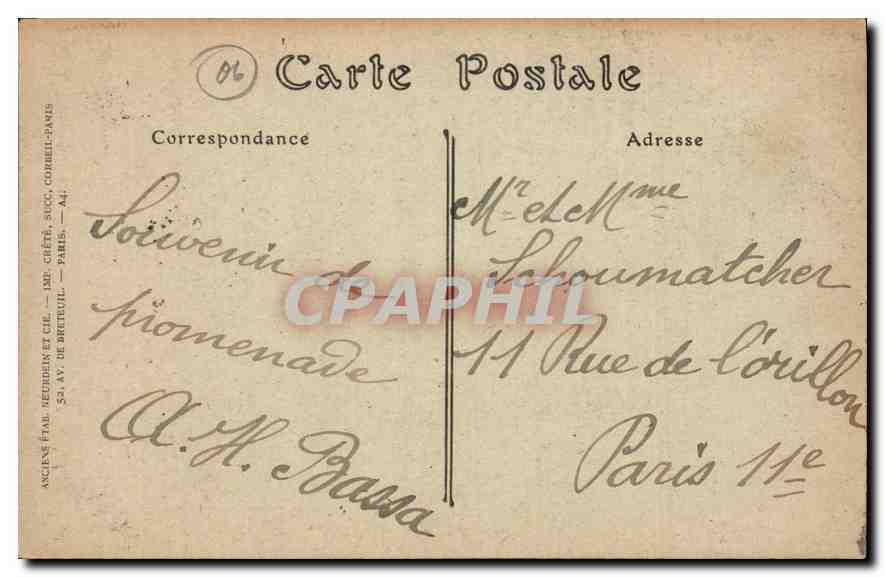 06
Carte Postale
Correspondance
Adresse
ANCIENS ÉTAB. NEURDEIN ET CIE. — IMP. CRÉTÉ, SUCC, CORBEIL-PARIS
52, AV. DE BRETEUIL. — PARIS. — A4.
Souvenir de
promenade
A. H. Bassa
Mr et Mme
Schoumatcher
11 Rue de l'orillon
Paris 11e
CPAPHIL